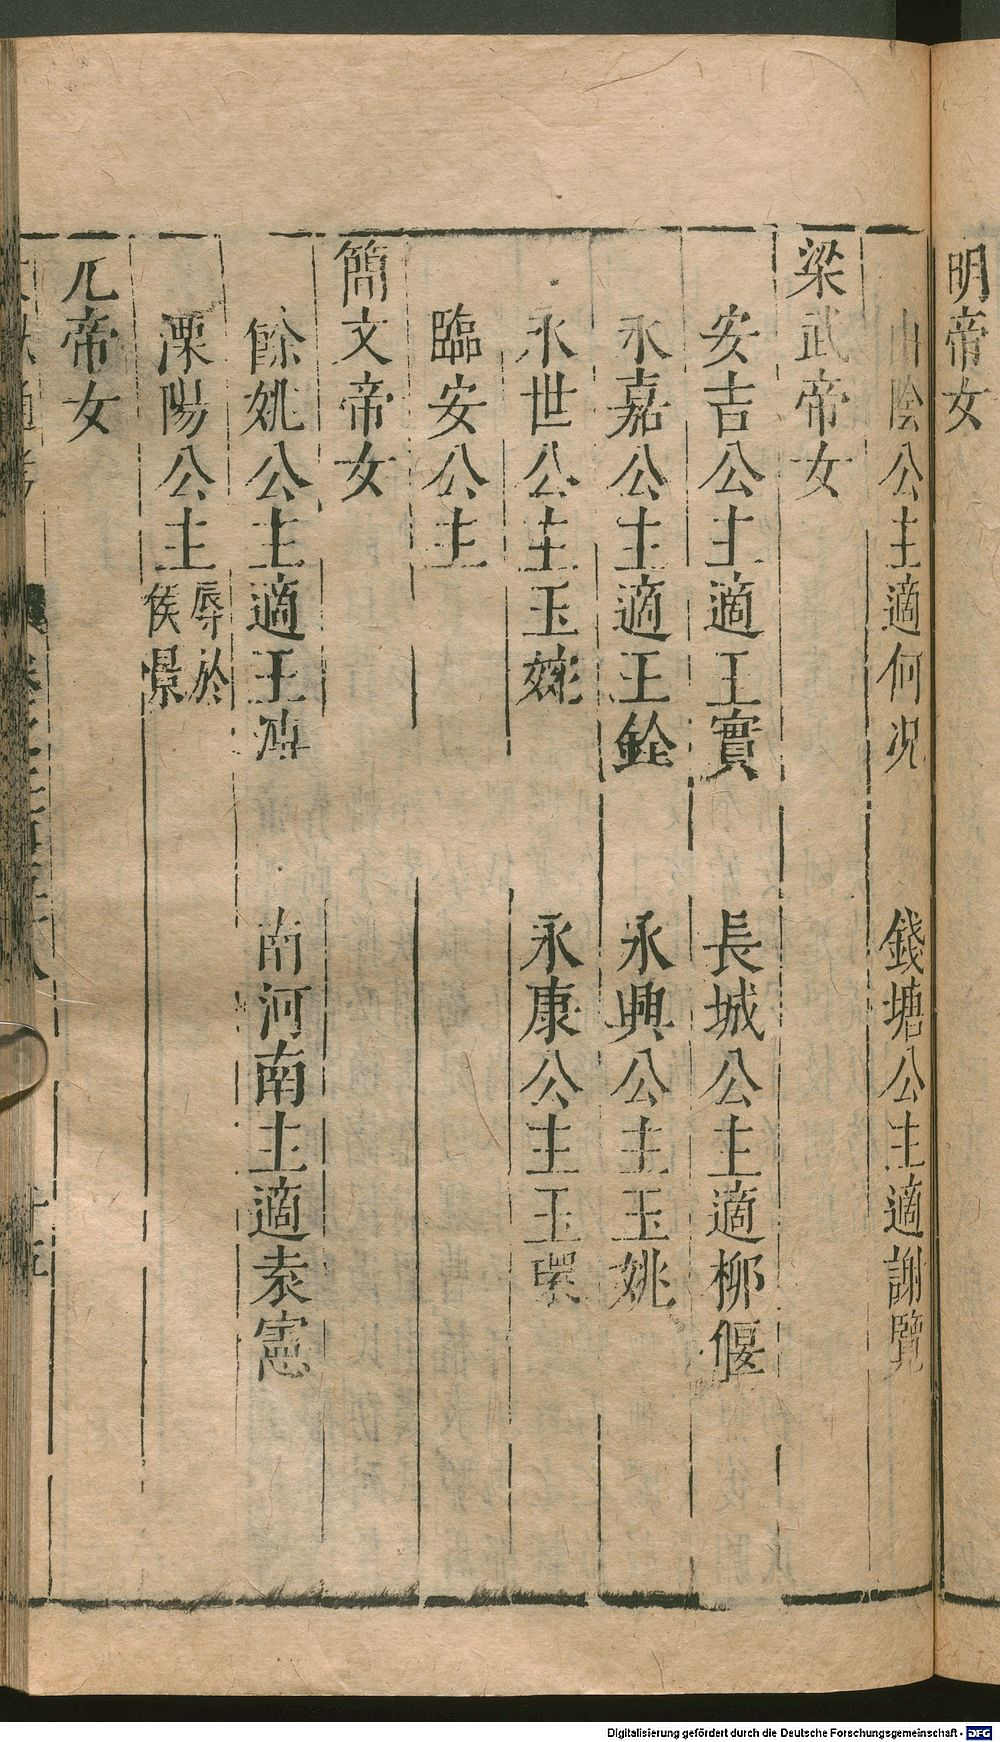 明帝女
山陰公主適何況　錢塘公主適謝覽
梁武帝女
安吉公主適王實　長城公主適柳偃
永嘉公主適王銓　永興公主玉姚
永世公主玉婉　永康公主玉環
臨安公主
簡文帝女
餘姚公主適王　南河南主適袁憲
溧陽公主辱於侯景
元帝女
Digitalisierung gefördert durch die Deutsche Forschungsgemeinschaft - DFG